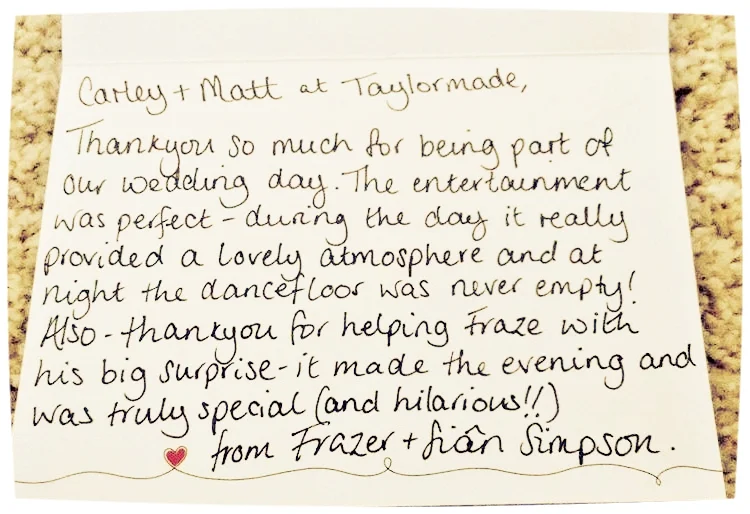 Carley + Matt at Taylormade,
Thankyou so much for being part of
our wedding day. The entertainment
was perfect - during the day it really
provided a lovely atmosphere and at
night the dancefloor was never empty!
Also - thankyou for helping Fraze with
his big surprise - it made the evening and
was truly special (and hilarious!!)
from Frazer + Siân Simpson.